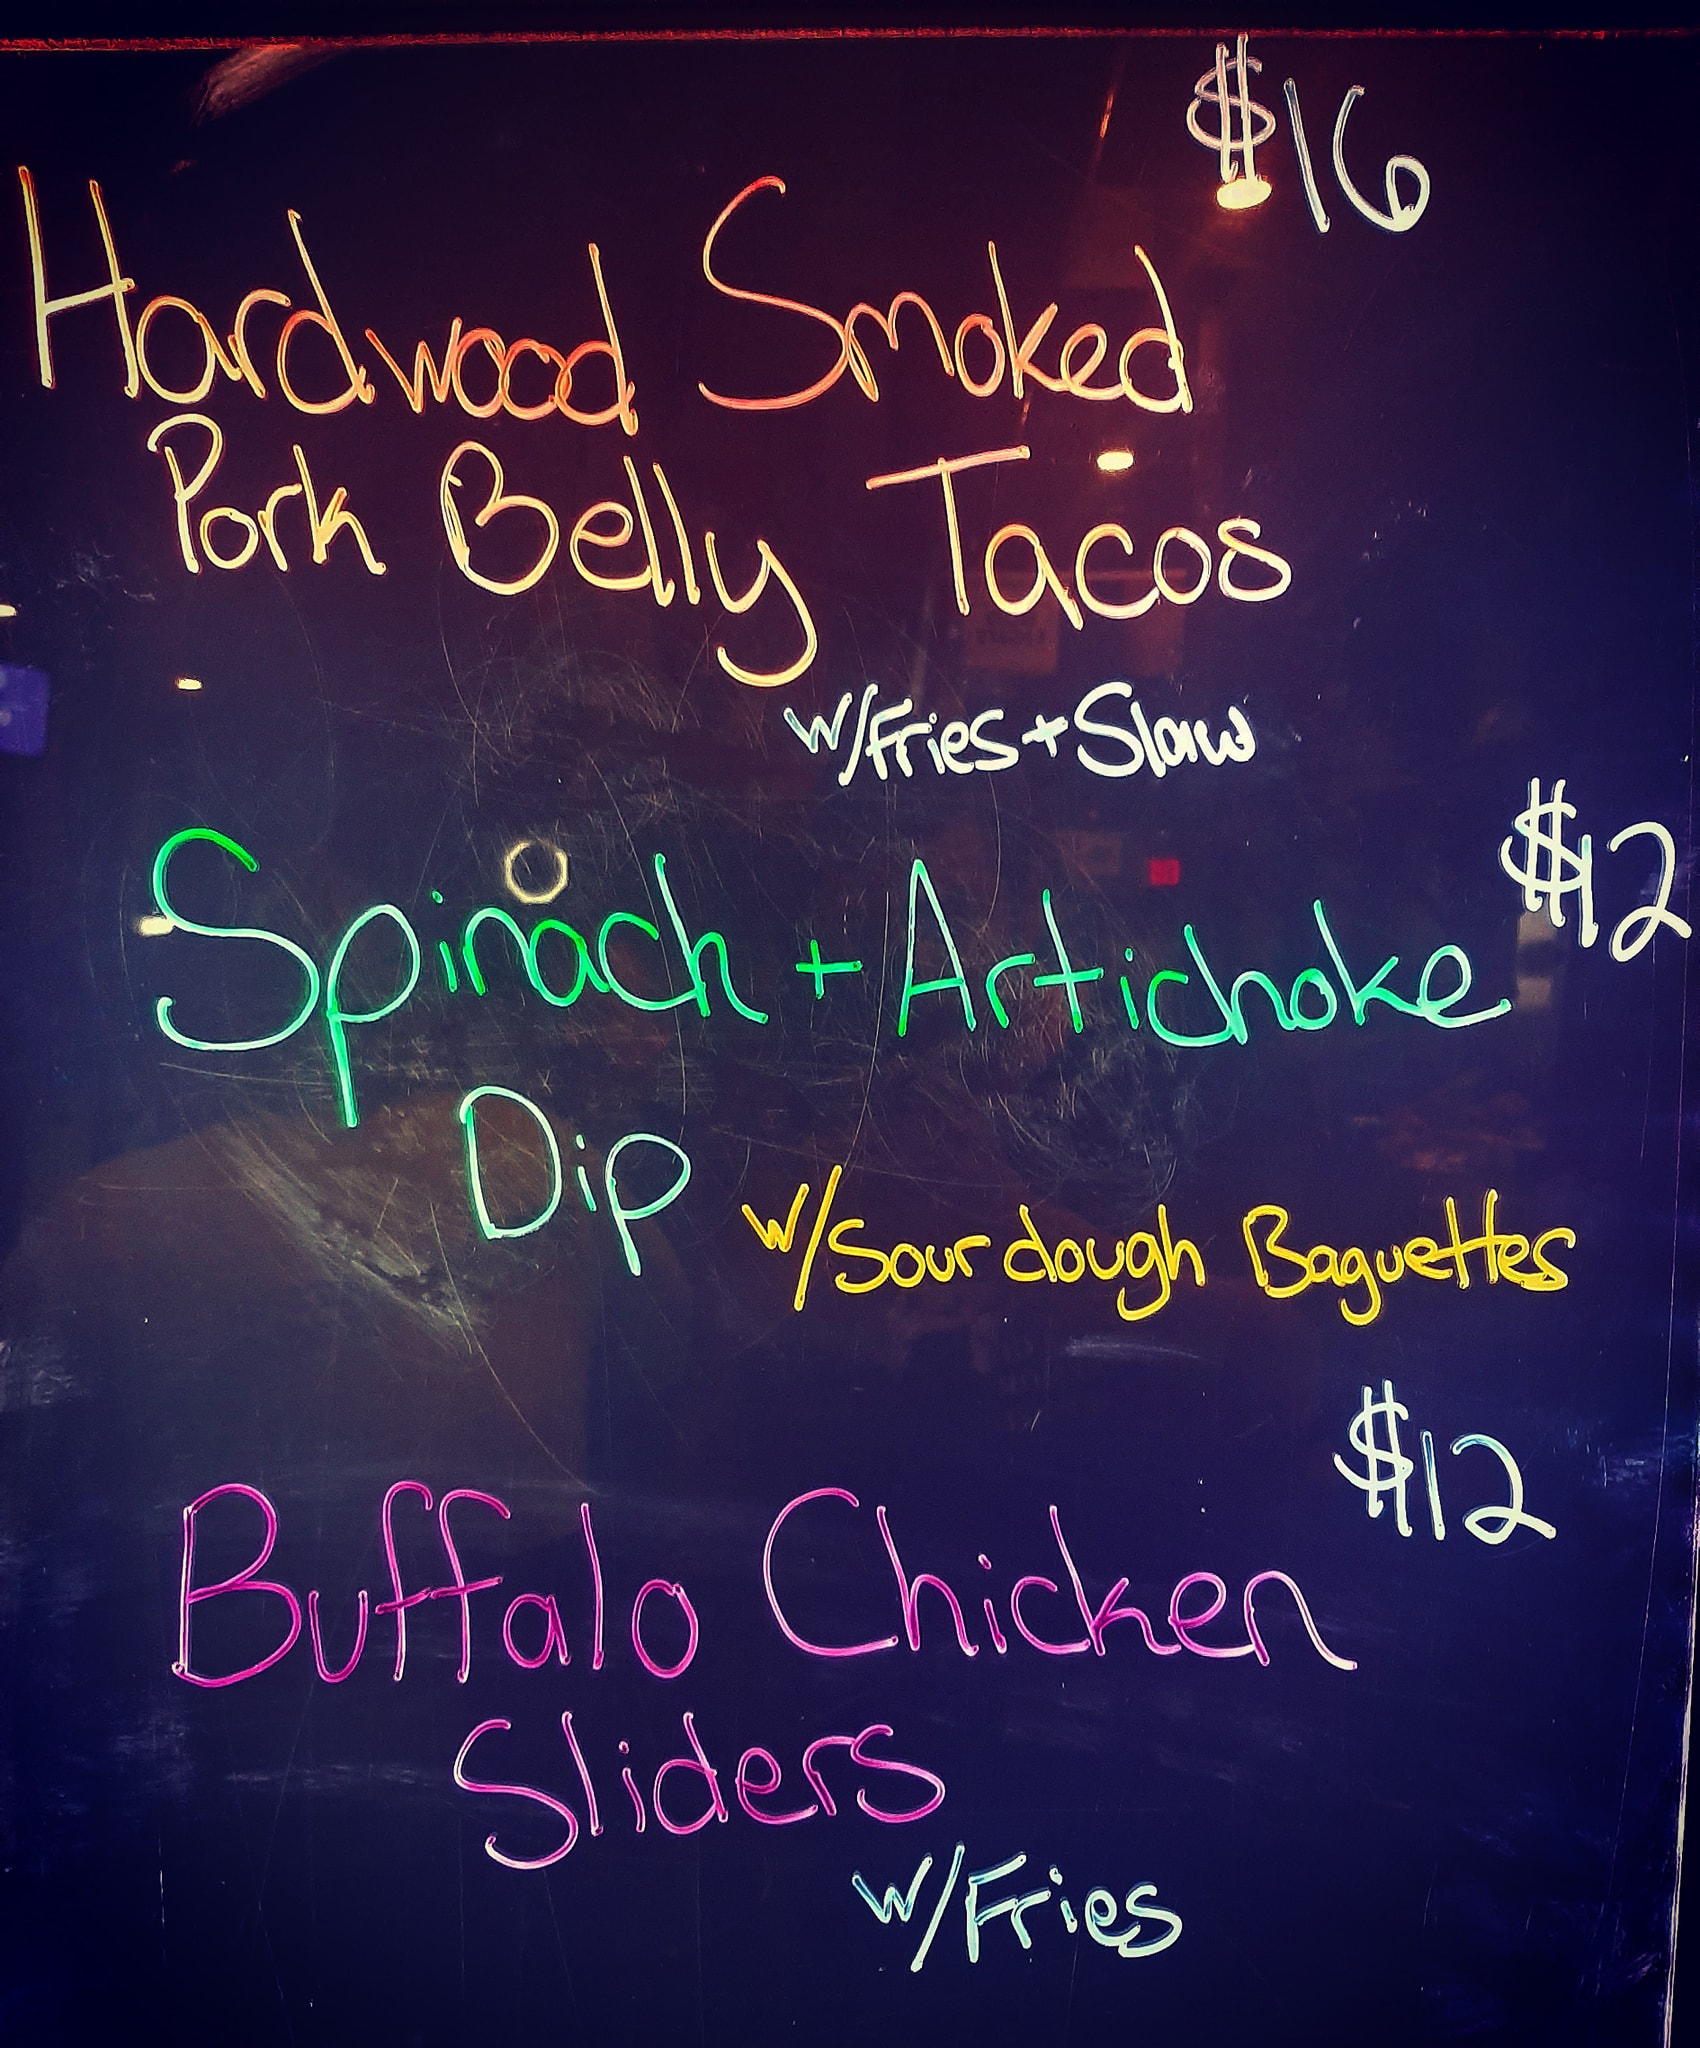 $16
Hardwood Smoked
Pork Belly Tacos
w/Fries + Slaw
$12
Spinach + Artichoke
Dip
w/Sourdough Baguettes
$12
Buffalo Chicken
Sliders
w/Fries